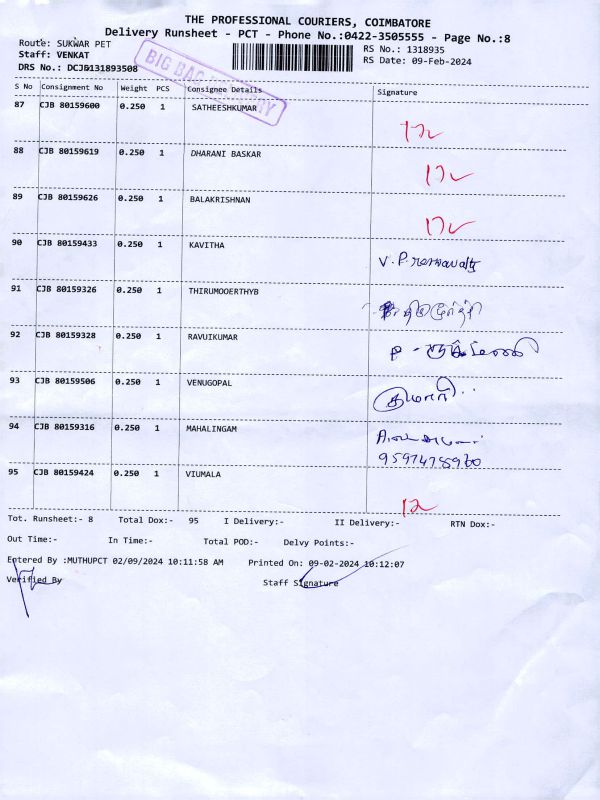 THE PROFESSIONAL COURIERS, COIMBATORE
Delivery Runsheet - PCT - Phone No.:0422-3505555 - Page No.:8
Route: SUKWAR PET
RS No.: 1318935
Staff: VENKAT
RS Date: 09-Feb-2024
DRS No.: DCJB131893508
BIG BAG
S No Consignment No Weight PCS Consignee Details Signature
87 CJB 80159600 0.250 1 SATHEESHKUMAR
88 CJB 80159619 0.250 1 DHARANI BASKAR
89 CJB 80159626 0.250 1 BALAKRISHNAN
90 CJB 80159433 0.250 1 KAVITHA V.P.
91 CJB 80159326 0.250 1 THIRUMOOERTHYB
92 CJB 80159328 0.250 1 RAVUIKUMAR
93 CJB 80159506 0.250 1 VENUGOPAL
94 CJB 80159316 0.250 1 MAHALINGAM
95 CJB 80159424 0.250 1 VIUMALA
Tot. Runsheet:- 8 Total Dox:- 95 I Delivery:- II Delivery:- RTN Dox:-
Out Time:- In Time:- Total POD:- Delvy Points:-
Entered By :MUTHUPCT 02/09/2024 10:11:58 AM Printed On: 09-02-2024 10:12:07
Verified By Staff Signature